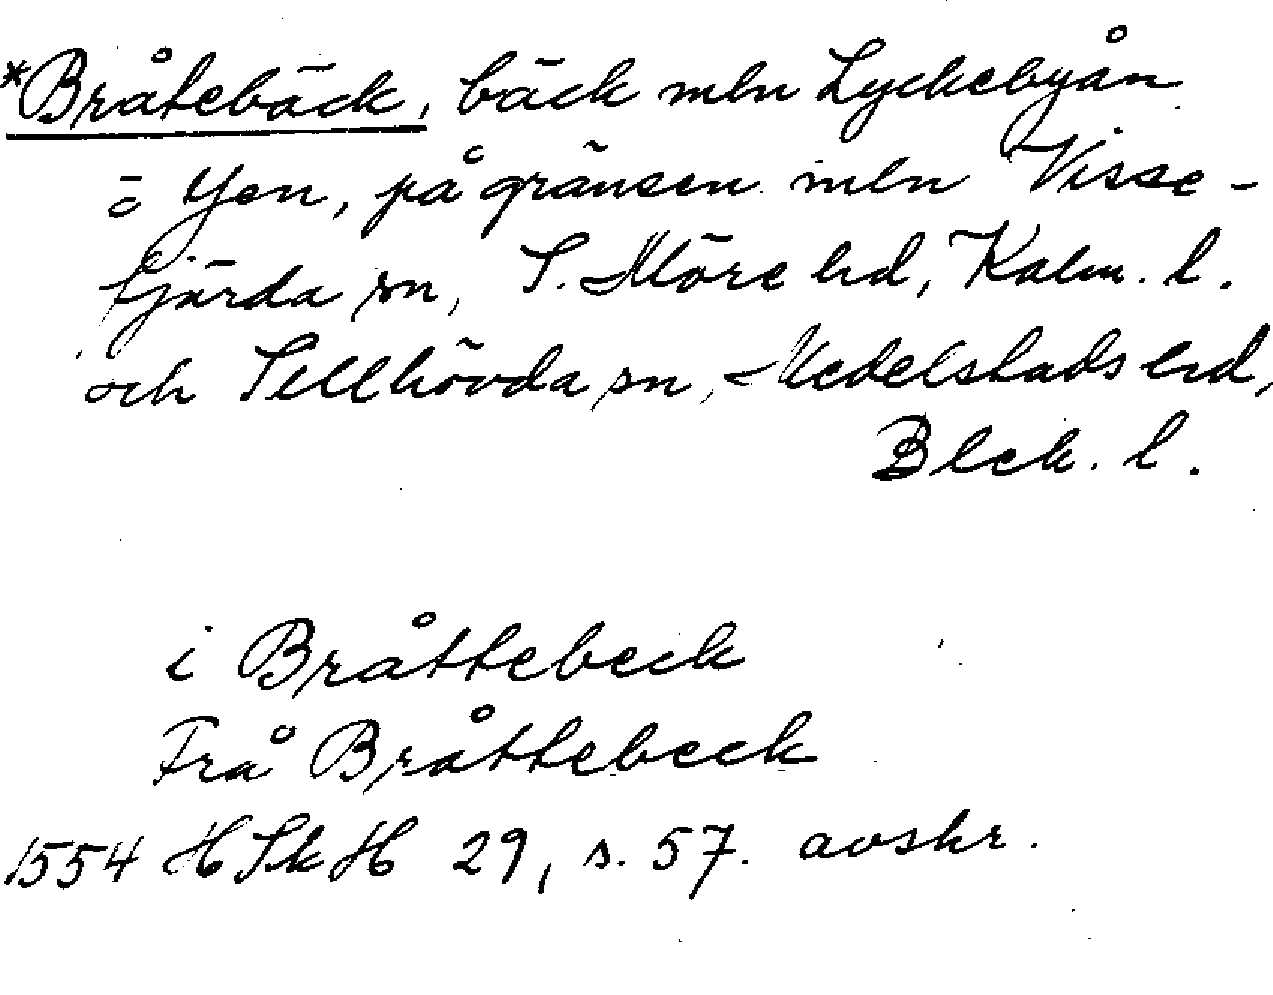 *Bråtebäck, bäck mln Lyckebyån
o Yen, på gränsen mln Visse-
fjärda sn, S. Möre hd, Kalm. l.
och Sillhövda sn, Medelstads hd,
Blek. l.
i Bråttebeck
Frå Bråttebeck
1554 HSkH 29, s. 57. avskr.